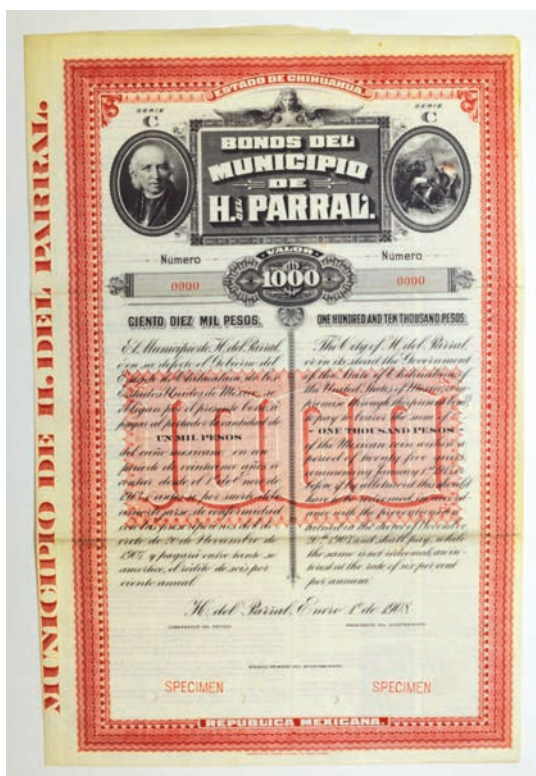 MUNICIPIO DE H. DEL PARRAL.
ESTADO DE CHIHUAHUA
SERIE
C
SERIE
C
BONOS DEL
MUNICIPIO
DE
H. DEL PARRAL.
VALOR
Número
Número
0000
1000
0000
CIENTO DIEZ MIL PESOS.
ONE HUNDRED AND TEN THOUSAND PESOS
El Municipio de H. del Parral,
ó en su defecto el Gobierno del
Estado de Chihuahua, de los
Estados Unidos de México, se
obligan por el presente bono, á
pagar al portador la cantidad de
UN MIL PESOS
del cuño mexicano en un
período de veinticinco años á
contar desde el 1º de Enero de
1908
de conformidad
creto de 20 de Noviembre de
1907, y pagará entre tanto se
amortice, el rédito de seis por
ciento anual.
The City of H. del Parral,
or in its stead the Government
of the State of Chihuahua, of
the United States of Mexico,
promise through the present bond
to pay to bearer the sum of
ONE THOUSAND PESOS
of the Mexican coin within a
period of twenty five years,
commencing January 1st
before if by allotment this should
have to be redeemed, in accord-
ance with the
in the decree of November
20th 1907, and shall pay, while
the same is not redeemed, an in-
terest at the rate of six per cent
per annum.
1000
H. del Parral, Enero 1º de 1908.
GOBERNADOR DEL ESTADO
PRESIDENTE DEL AYUNTAMIENTO
SPECIMEN
SPECIMEN
REPUBLICA MEXICANA.